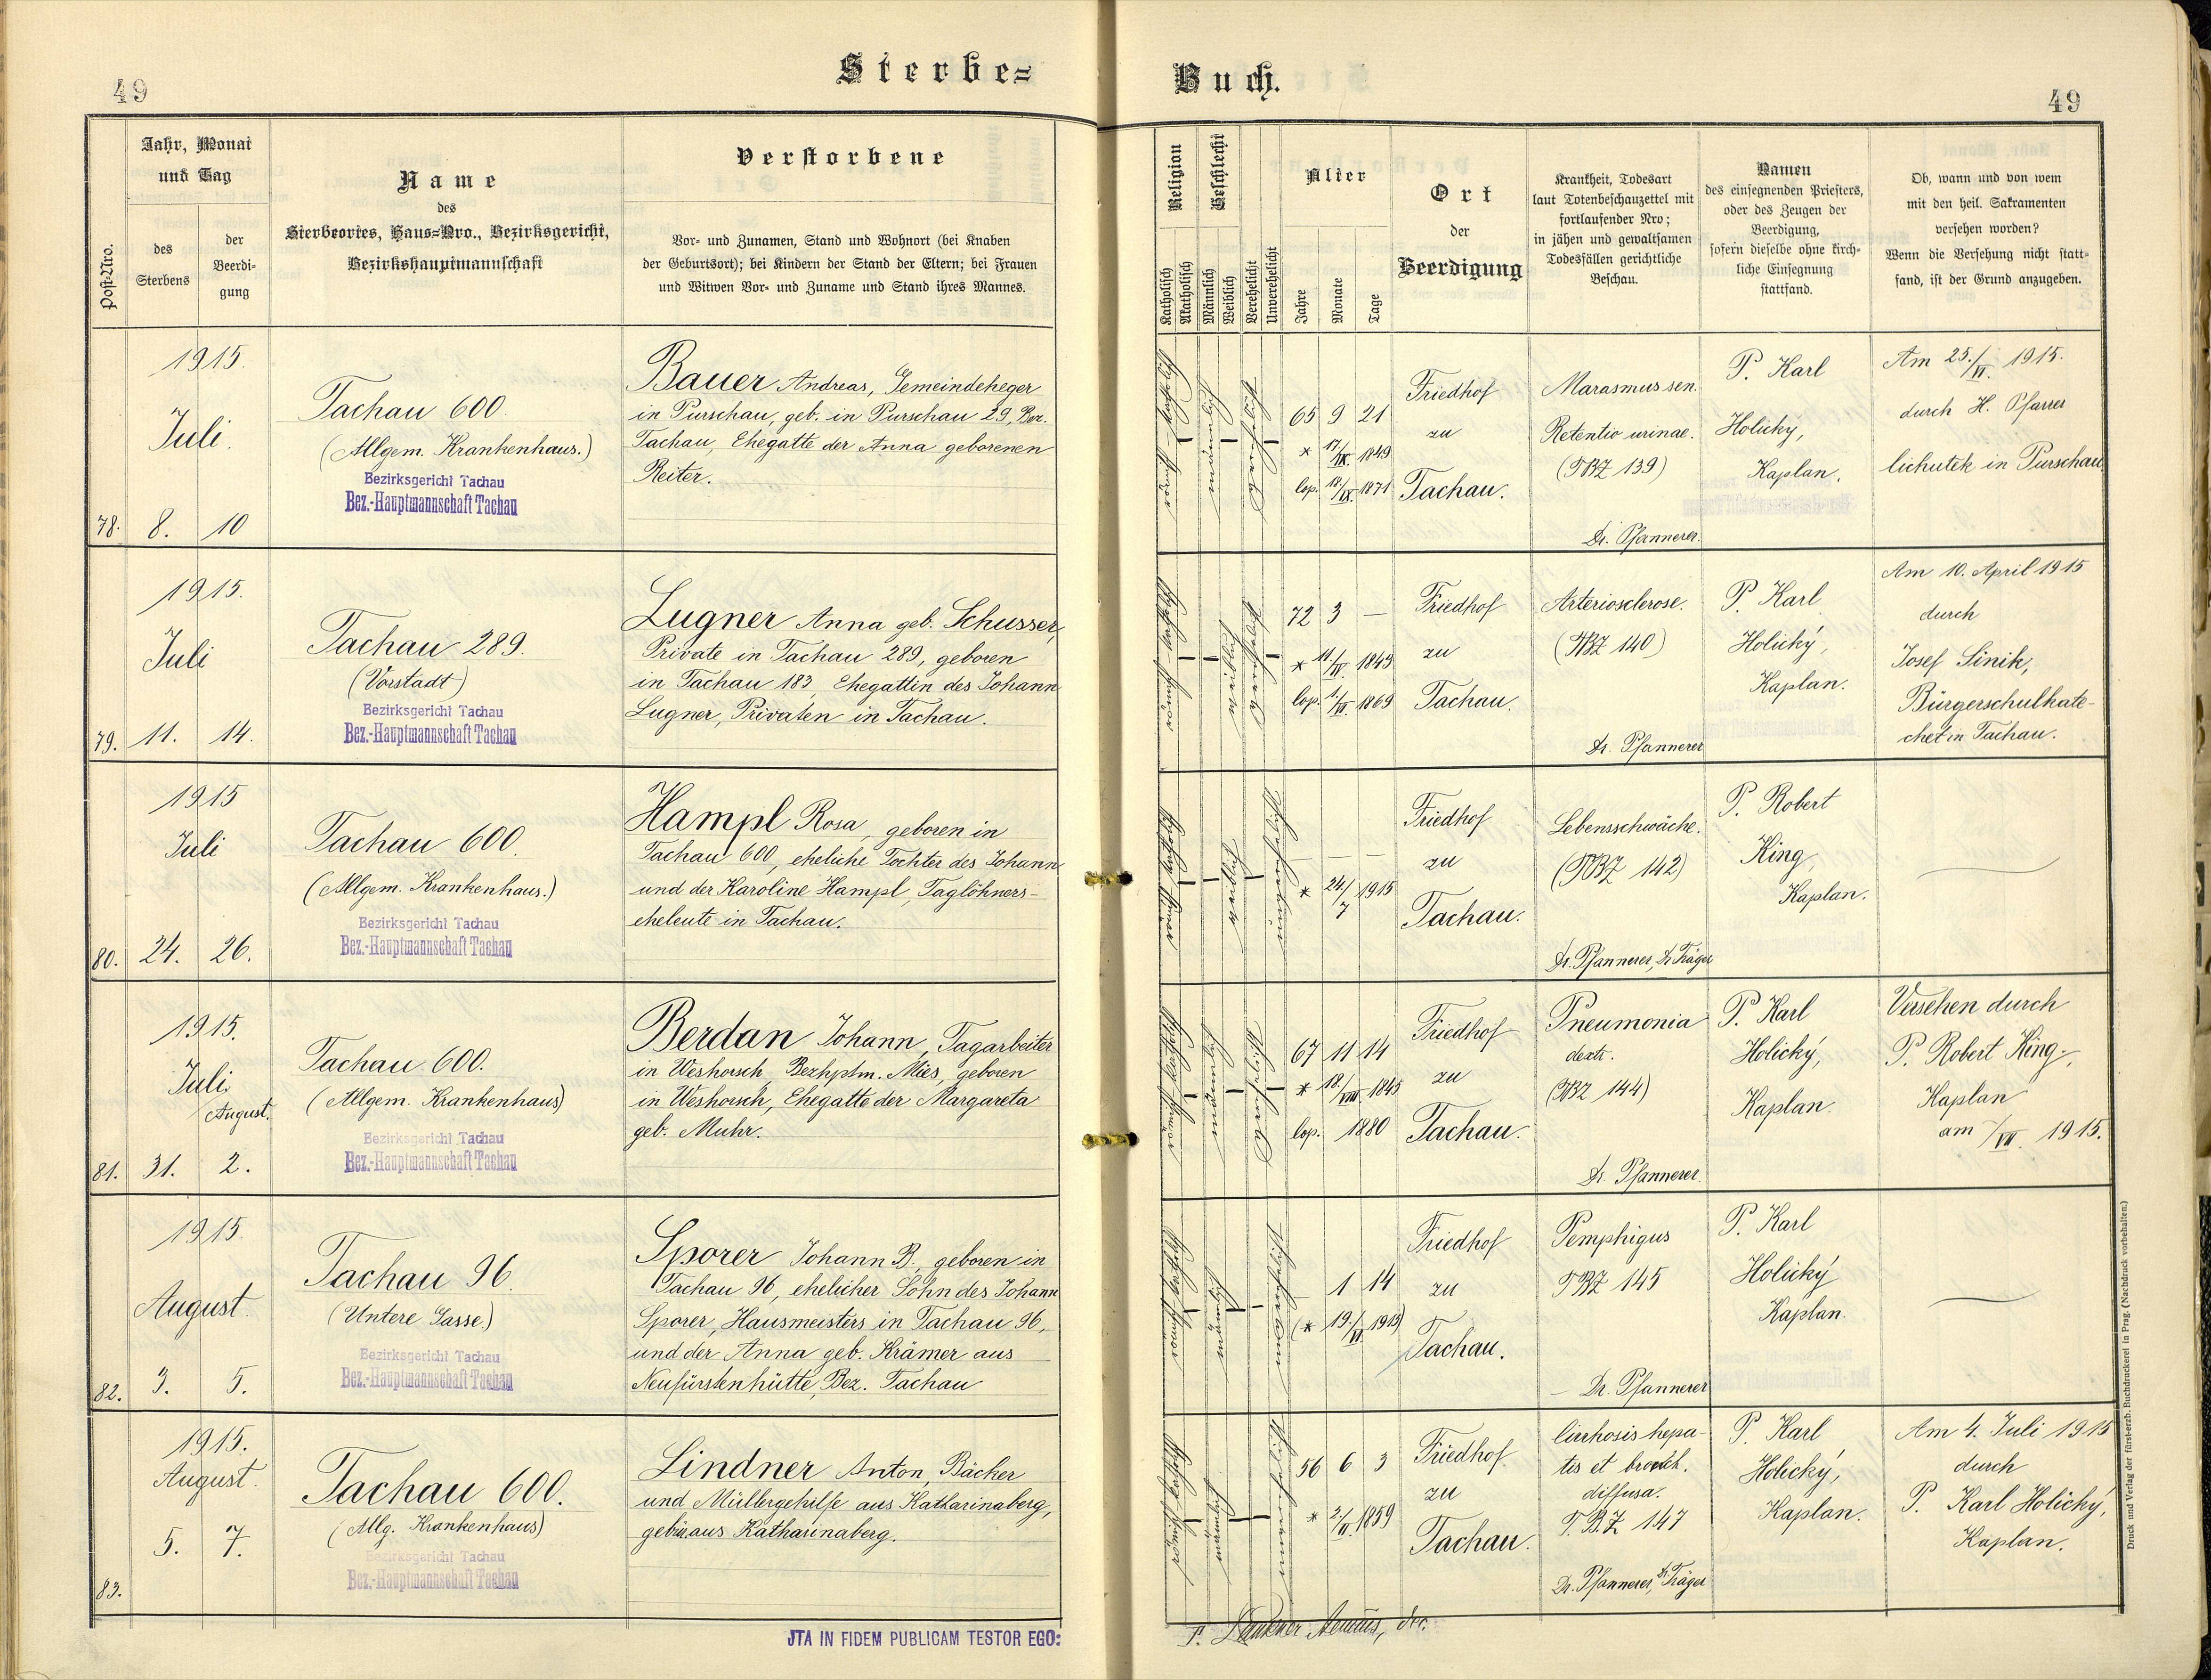 Sterbe=
Buch.
49
49
Post-Nro.
Jahr, Monat
und Tag
des
Sterbens
der
Beerdi-
gung
Name
des
Sterbeortes, Haus=Nro., Bezirksgericht,
Bezirkshauptmannschaft
Verstorbene
Vor- und Zunamen, Stand und Wohnort (bei Knaben
der Geburtsort); bei Kindern der Stand der Eltern; bei Frauen
und Witwen Vor- und Zuname und Stand ihres Mannes.
Religion
Katholisch
Akatholisch
Geschlecht
Männlich
Weiblich
Verehelicht
Unverehelicht
Alter
Jahre
Monate
Tage
Ort
der
Beerdigung
Krankheit, Todesart
laut Totenbeschauzettel mit
fortlaufender Nro;
in jähen und gewaltsamen
Todesfällen gerichtliche
Beschau.
Namen
des einsegnenden Priesters,
oder des Zeugen der
Beerdigung,
sofern dieselbe ohne kirch-
liche Einsegnung
stattfand.
Ob, wann und von wem
mit den heil. Sakramenten
versehen worden?
Wenn die Versehung nicht statt-
fand, ist der Grund anzugeben.
78.
1915.
Juli.
8. 10
Tachau 600.
(Allgem. Krankenhaus.)
Bezirksgericht Tachau
Bez.-Hauptmannschaft Tachau
Bauer Andreas, Gemeindeheger
in Purschau, geb. in Purschau 29, Bez.
Tachau, Ehegatte der Anna geborenen
Reiter.
männlich
verehelicht
65 9 21
* 17./IX. 1849
cop. 18./IX. 1871
Friedhof
zu
Tachau.
Marasmus sen.
Retentio urinae.
(TBZ 139)
Dr. Pfannerer.
P. Karl
Holický,
Kaplan.
Am 25./VI. 1915.
durch H. Pfarrer
Cichutek in Purschau.
79.
1915.
Juli
11. 14.
Tachau 289.
(Vorstadt)
Bezirksgericht Tachau
Bez.-Hauptmannschaft Tachau
Lugner Anna geb. Schusser,
Private in Tachau 289, geboren
in Tachau 183, Ehegattin des Johann
Lugner, Privaten in Tachau.
weiblich
verehelicht
72 3 —
* 11./IV. 1843
Friedhof
zu
Tachau.
Arteriosclerose.
(TBZ 140)
Dr. Pfannerer
P. Karl
Holický,
Kaplan.
Am 10. April 1915
durch
Josef Sinik,
Bürgerschulkate-
chet in Tachau.
80.
1915
Juli
24. 26.
Tachau 600.
(Allgem. Krankenhaus.)
Bezirksgericht Tachau
Bez.-Hauptmannschaft Tachau
Hampl Rosa, geboren in
Tachau 600, eheliche Tochter des Johann
und der Karoline Hampl, Taglöhners-
eheleute in Tachau.
weiblich
unverehelicht
— — —
* 24./7 1915
Friedhof
zu
Tachau.
Lebensschwäche.
(TBZ 142)
Dr. Pfannerer, Dr Träger
P. Robert
King,
Kaplan.
81.
1915.
Juli
August.
31. 2.
Tachau 600.
(Allgem. Krankenhaus)
Bezirksgericht Tachau
Bez.-Hauptmannschaft Tachau
Berdan Johann, Tagarbeiter
in Weshorsch, Bezhptm. Mies, geboren
in Weshorsch, Ehegatte der Margareta
geb. Muhr.
männlich
verehelicht
67 11 14
* 18./VIII. 1845
cop. 1880
Friedhof
zu
Tachau.
Pneumonia
dextr.
(TBZ 144)
Dr. Pfannerer.
P. Karl
Holický,
Kaplan.
Versehen durch
P. Robert King,
Kaplan
am /VII. 1915.
82.
1915
August.
3. 5.
Tachau 96.
(Untere Gasse.)
Bezirksgericht Tachau
Bez.-Hauptmannschaft Tachau
Sporer Johann B., geboren in
Tachau 96, ehelicher Sohn des Johann
Sporer, Hausmeisters in Tachau 96,
und der Anna geb. Krämer aus
Neufürstenhütte, Bez. Tachau
männlich
unverehelicht
1 14
(* 19./VI. 1915)
Friedhof
zu
Tachau.
Pemphigus
TBZ 145
Dr. Pfannerer
P. Karl
Holický
Kaplan.
83.
1915.
August.
5. 7.
Tachau 600.
(Allg. Krankenhaus)
Bezirksgericht Tachau
Bez.-Hauptmannschaft Tachau
Lindner Anton, Bäcker
und Müllergehilfe aus Katharinaberg,
aus Katharinaberg.
männlich
unverehelicht
56 6 3
* 2./II. 1859
Friedhof
zu
Tachau.
Cirrhosis hepa-
tis et bronch.
diffusa.
T.B.Z 147
Dr. Pfannerer, Dr. Träger
P. Karl
Holický,
Kaplan.
Am 4. Juli 1915
durch
P. Karl Holický,
Kaplan.
JTA IN FIDEM PUBLICAM TESTOR EGO:
Druck und Verlag der fürsterzb. Buchdruckerei in Prag. (Nachdruck vorbehalten.)